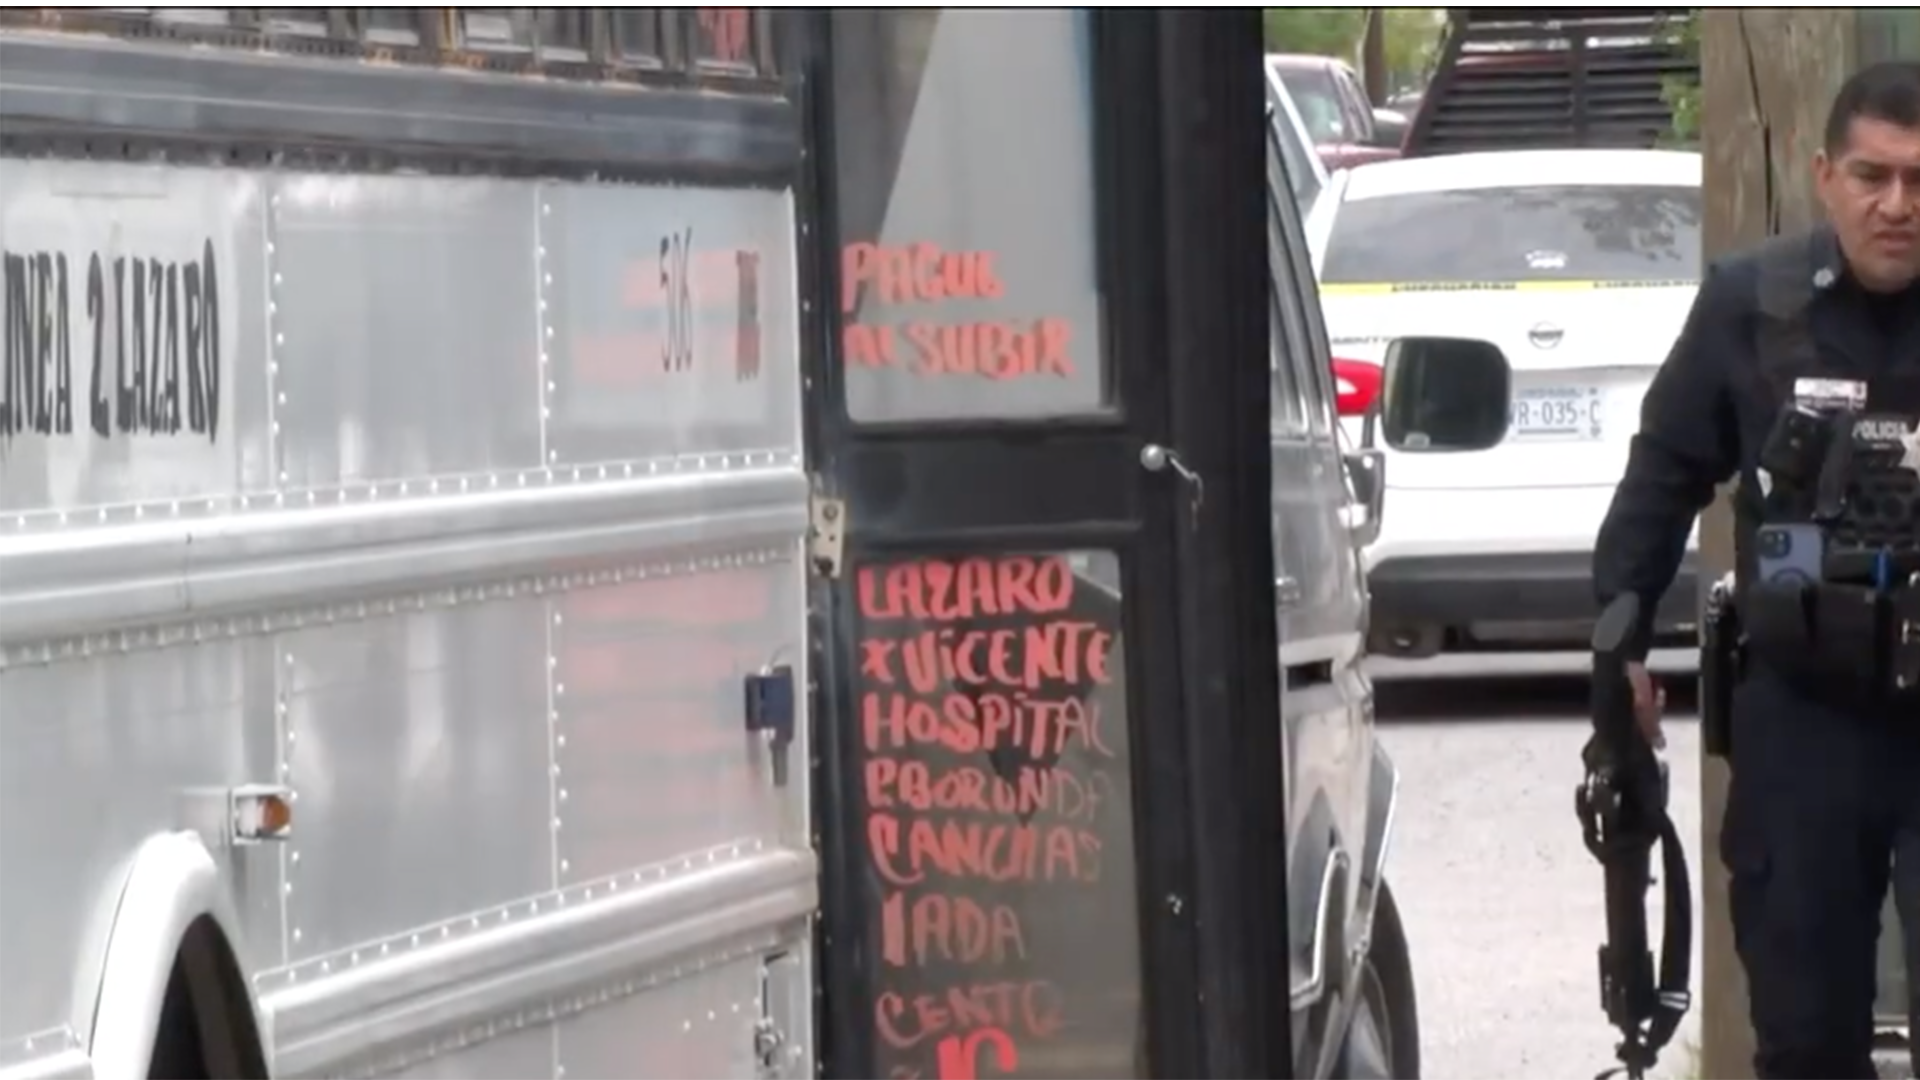 LINEA 2 LAZARO
506
PAGUE
AL SUBIR
LAZARO
X VICENTE
HOSPITAL
P. BORUNDA
CANCHAS
IADA
CENTO
R-035-C
POLICIA